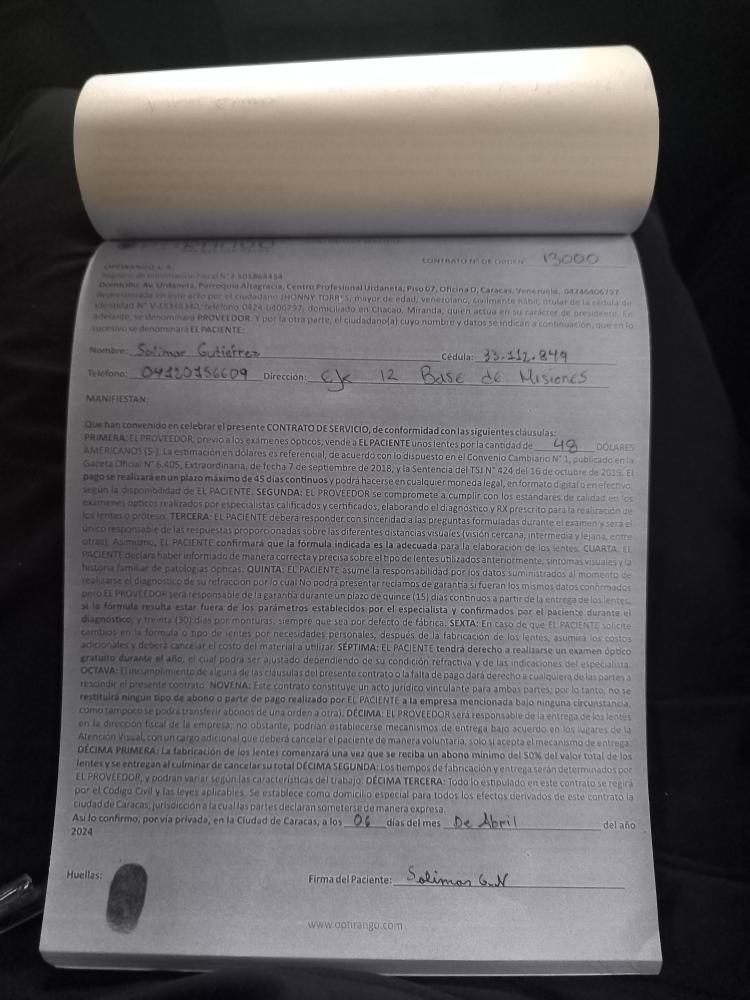 CONTRATO N° DE ORDEN: 13000
OPTIRANGO, C.A.
Domicilio: Av. Urdaneta, Parroquia Altagracia, Centro Profesional Urdaneta, Piso 07, Oficina D, Caracas, Venezuela. 04246406797
Representada en este acto por el ciudadano JHONNY TORRES, mayor de edad, venezolano, civilmente hábil, titular de la cédula de
identidad N° V-18348340, teléfono 0424-6406797, domiciliado en Chacao, Miranda, quien actúa en su carácter de presidente. En
adelante, se denominará PROVEEDOR. Y por la otra parte, el ciudadano(a) cuyo nombre y datos se indican a continuación, que en lo
sucesivo se denominará EL PACIENTE:
Nombre: Solimar Gutiérrez Cédula: 33.112.849
Teléfono: 04120156609 Dirección: Ejk 12 Base de Misiones
MANIFIESTAN:
Que han convenido en celebrar el presente CONTRATO DE SERVICIO, de conformidad con las siguientes cláusulas:
PRIMERA: EL PROVEEDOR, previo a los exámenes ópticos, vende a EL PACIENTE unos lentes por la cantidad de 48 DÓLARES
AMERICANOS ($-). La estimación en dólares es referencial, de acuerdo con lo dispuesto en el Convenio Cambiario N° 1, publicado en la
Gaceta Oficial N° 6.405, Extraordinaria, de fecha 7 de septiembre de 2018, y la Sentencia del TSJ N° 424 del 16 de octubre de 2019. El
pago se realizará en un plazo máximo de 45 días continuos y podrá hacerse en cualquier moneda legal, en formato digital o en efectivo,
según la disponibilidad de EL PACIENTE. SEGUNDA: EL PROVEEDOR se compromete a cumplir con los estándares de calidad en los
exámenes ópticos realizados por especialistas calificados y certificados, elaborando el diagnóstico y RX prescrito para la realización de
los lentes o prótesis. TERCERA: EL PACIENTE deberá responder con sinceridad a las preguntas formuladas durante el examen y será el
único responsable de las respuestas proporcionadas sobre las diferentes distancias visuales (visión cercana, intermedia y lejana, entre
otras). Asimismo, EL PACIENTE confirmará que la fórmula indicada es la adecuada para la elaboración de los lentes. CUARTA: EL
PACIENTE declara haber informado de manera correcta y precisa sobre el tipo de lentes utilizados anteriormente, síntomas visuales y la
historia familiar de patologías ópticas. QUINTA: EL PACIENTE asume la responsabilidad por los datos suministrados al momento de
realizarse el diagnostico de su refracción por lo cual No podrá presentar reclamos de garantía si fueran los mismos datos confirmados
pero EL PROVEEDOR será responsable de la garantía durante un plazo de quince (15) días continuos a partir de la entrega de los lentes,
si la fórmula resulta estar fuera de los parámetros establecidos por el especialista y confirmados por el paciente durante el
diagnóstico, y treinta (30) días por monturas, siempre que sea por defecto de fábrica. SEXTA: En caso de que EL PACIENTE solicite
cambios en la formula o tipo de lentes por necesidades personales, después de la fabricación de los lentes, asumirá los costos
adicionales y deberá cancelar el costo del material a utilizar. SÉPTIMA: EL PACIENTE tendrá derecho a realizarse un examen óptico
gratuito durante el año, el cual podrá ser ajustado dependiendo de su condición refractiva y de las indicaciones del especialista.
OCTAVA: El incumplimiento de alguna de las cláusulas del presente contrato o la falta de pago dará derecho a cualquiera de las partes a
rescindir el presente contrato. NOVENA: Este contrato constituye un acto jurídico vinculante para ambas partes; por lo tanto, no se
restituirá ningún tipo de abono o parte de pago realizado por EL PACIENTE a la empresa mencionada bajo ninguna circunstancia,
como tampoco se podrá transferir abonos de una orden a otra). DÉCIMA: EL PROVEEDOR será responsable de la entrega de los lentes
en la dirección fiscal de la empresa; no obstante, podrían establecerse mecanismos de entrega bajo acuerdo en los lugares de la
Atención Visual, con un cargo adicional que deberá cancelar el paciente de manera voluntaria, solo si acepta el mecanismo de entrega.
DÉCIMA PRIMERA: La fabricación de los lentes comenzará una vez que se reciba un abono mínimo del 50% del valor total de los
lentes y se entregan al culminar de cancelar su total DÉCIMA SEGUNDA: Los tiempos de fabricación y entrega serán determinados por
EL PROVEEDOR, y podrán variar según las características del trabajo. DÉCIMA TERCERA: Todo lo estipulado en este contrato se regirá
por el Código Civil y las leyes aplicables. Se establece como domicilio especial para todos los efectos derivados de este contrato la
ciudad de Caracas, jurisdicción a la cual las partes declaran someterse de manera expresa.
Así lo confirmo, por vía privada, en la Ciudad de Caracas, a los 06 días del mes De Abril del año
2024
Huellas:
Firma del Paciente: Solimar G.N
www.optirango.com